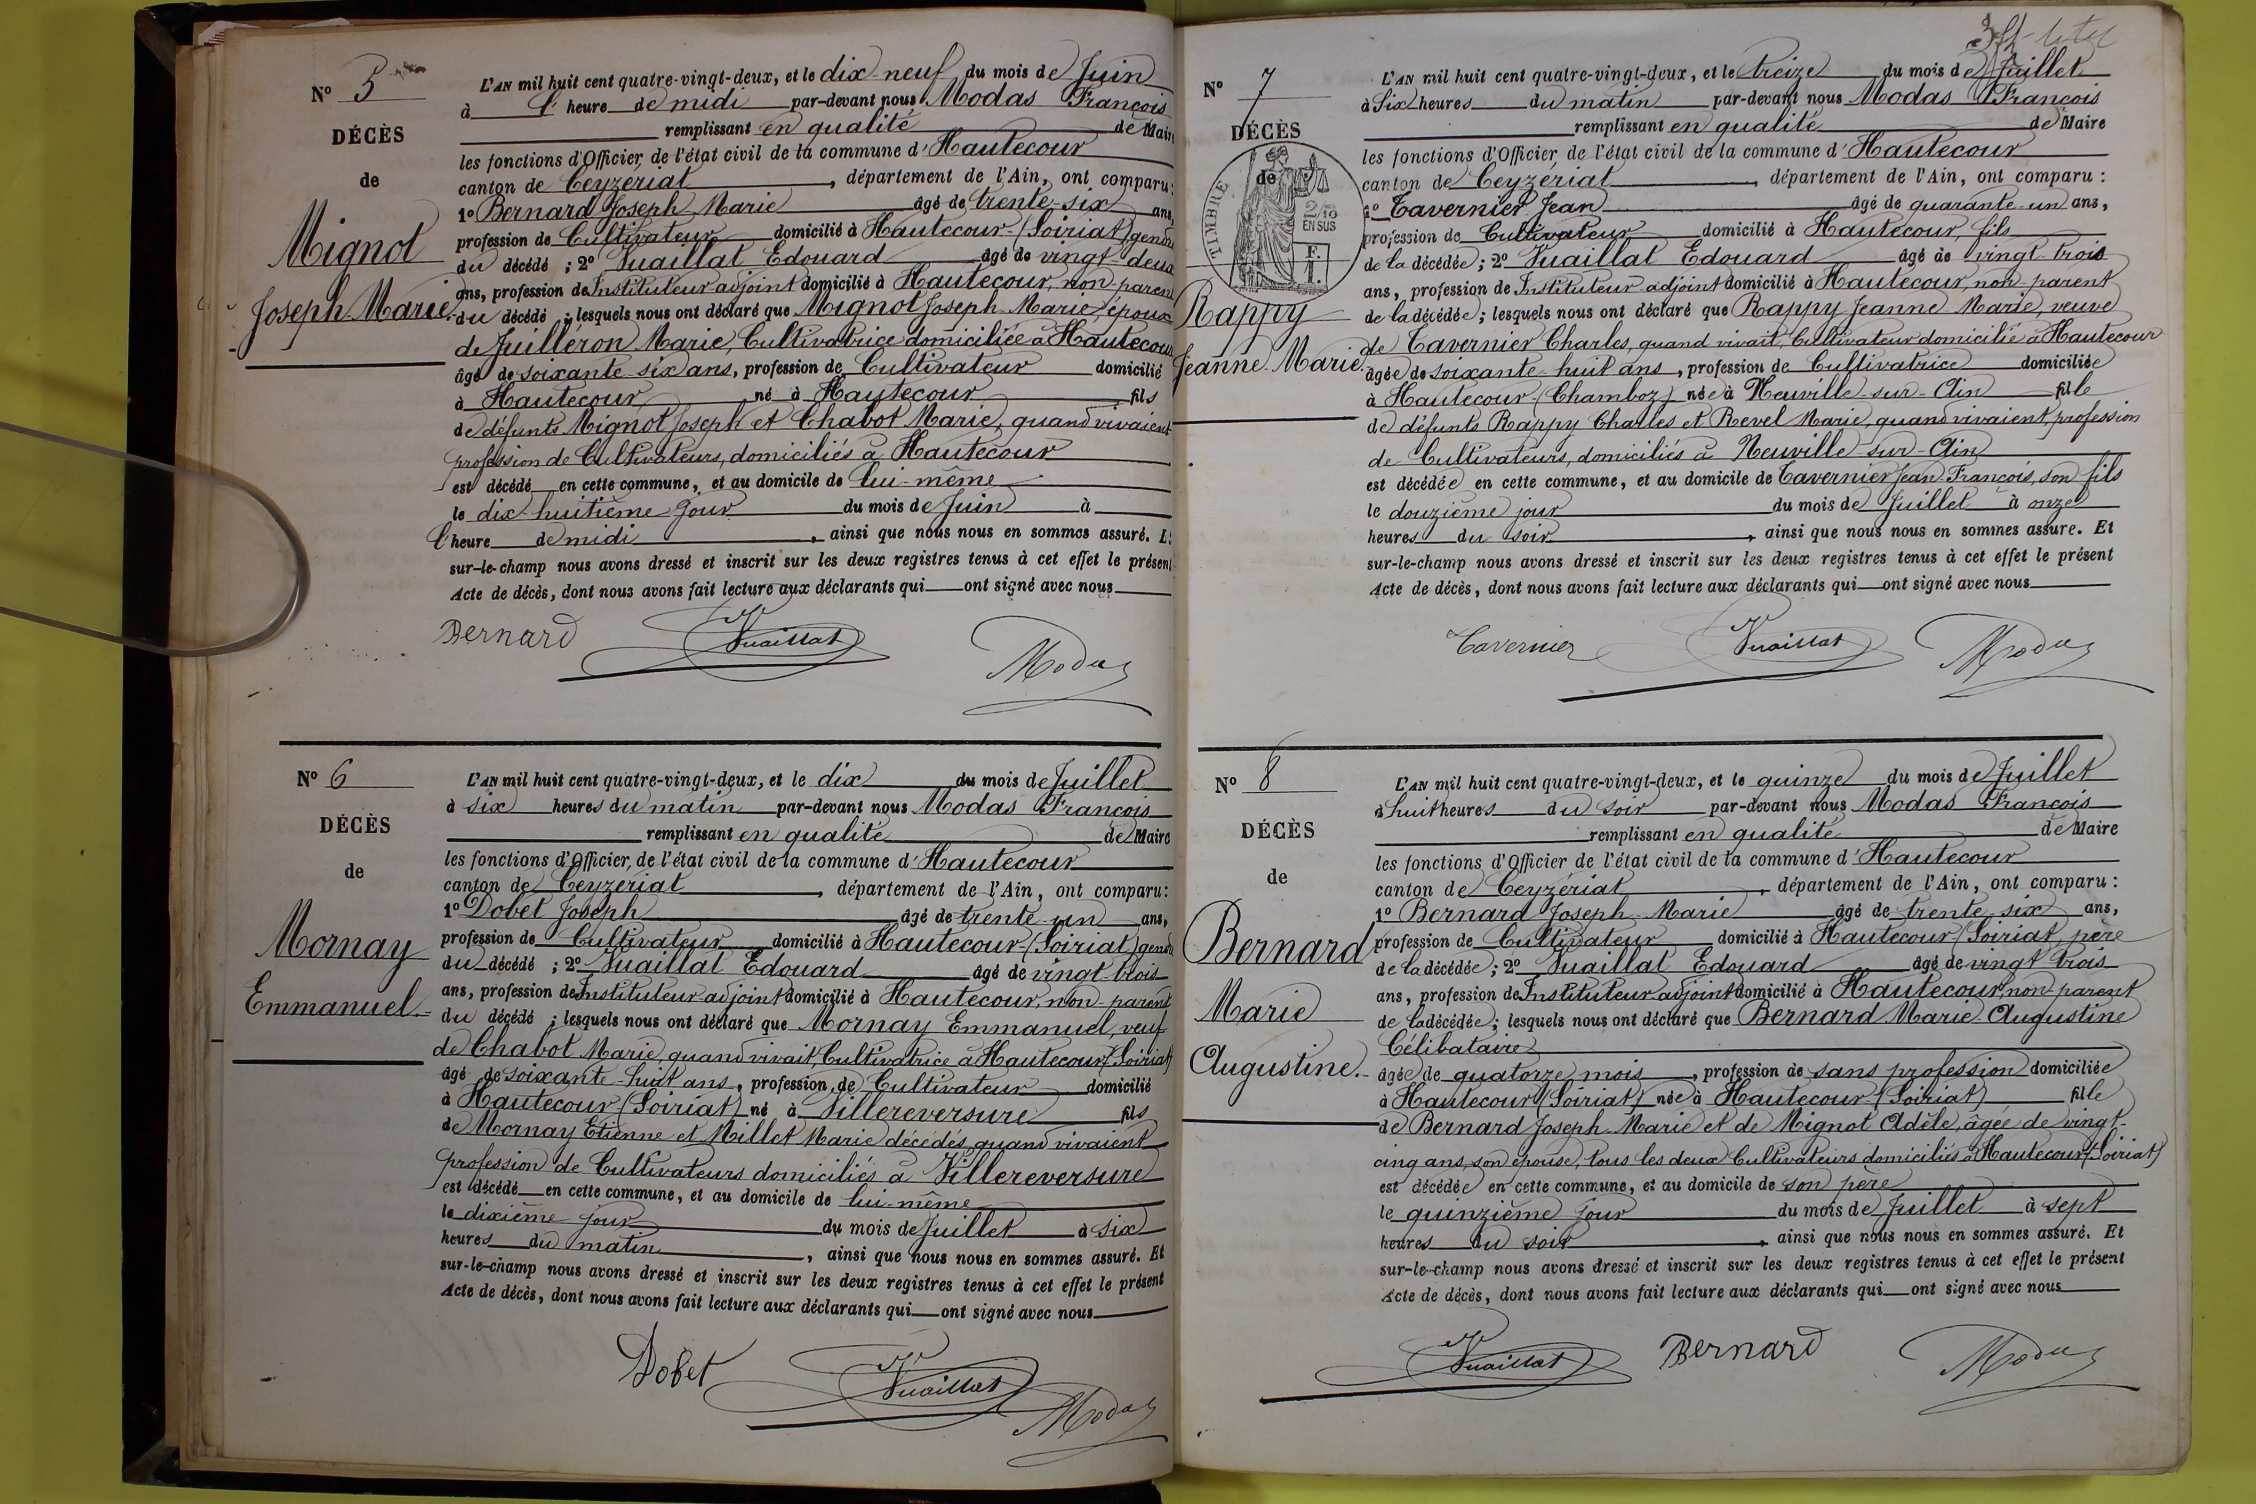 N° 5
DÉCÈS
de
Mignot
Joseph Marie.
L'AN mil huit cent quatre-vingt-deux, et le dix-neuf du mois de Juin
à l' heure de midi par-devant nous Modas François
remplissant en qualité de Maire
les fonctions d'Officier de l'état civil de la commune d'Hautecour
canton de Ceyzériat, département de l'Ain, ont comparu :
1° Bernard Joseph Marie âgé de trente-six ans,
profession de Cultivateur domicilié à Hautecour (Soiriat) gendre
du décédé ; 2° Vuaillat Edouard âgé de vingt-deux
ans, profession de Instituteur adjoint domicilié à Hautecour, non-parent
du décédé ; lesquels nous ont déclaré que Mignot Joseph Marie, époux
de Juilléron Marie, Cultivatrice domiciliée à Hautecour
âgé de soixante-six ans, profession de Cultivateur domicilié
à Hautecour né à Hautecour, fils
de défunts Mignot Joseph et Chabot Marie, quand vivaient
profession de Cultivateurs, domiciliés à Hautecour
est décédé en cette commune, et au domicile de lui-même
le dix-huitième jour du mois de Juin à
l'heure de midi, ainsi que nous nous en sommes assuré. Et
sur-le-champ nous avons dressé et inscrit sur les deux registres tenus à cet effet le présent
Acte de décès, dont nous avons fait lecture aux déclarants qui ont signé avec nous
Bernard Vuaillat Modas
N° 6
DÉCÈS
de
Mornay
Emmanuel.
L'AN mil huit cent quatre-vingt-deux, et le dix du mois de Juillet
à six heures du matin par-devant nous Modas François
remplissant en qualité de Maire
les fonctions d'Officier de l'état civil de la commune d'Hautecour
canton de Ceyzériat, département de l'Ain, ont comparu :
1° Dobet Joseph âgé de trente-un ans,
profession de Cultivateur domicilié à Hautecour (Soiriat) gendre
du décédé ; 2° Vuaillat Edouard âgé de vingt-trois
ans, profession de Instituteur adjoint domicilié à Hautecour, non-parent
du décédé ; lesquels nous ont déclaré que Mornay Emmanuel, veuf
de Chabot Marie, quand vivait, Cultivatrice à Hautecour (Soiriat)
âgé de soixante-huit ans, profession de Cultivateur domicilié
à Hautecour (Soiriat) né à Villereversure fils
de Mornay Etienne et Millet Marie décédés, quand vivaient
profession de Cultivateurs domiciliés à Villereversure
est décédé en cette commune, et au domicile de lui-même
le dixième jour du mois de Juillet à six
heures du matin, ainsi que nous nous en sommes assuré. Et
sur-le-champ nous avons dressé et inscrit sur les deux registres tenus à cet effet le présent
Acte de décès, dont nous avons fait lecture aux déclarants qui ont signé avec nous
Dobet Vuaillat Modas
N° 7
DÉCÈS
de
TIMBRE
2/10
EN SUS
F.
1.
Rappy
Jeanne Marie.
L'AN mil huit cent quatre-vingt-deux, et le treize du mois de Juillet
à Six heures du matin par-devant nous Modas François
remplissant en qualité de Maire
les fonctions d'Officier de l'état civil de la commune d'Hautecour
canton de Ceyzériat, département de l'Ain, ont comparu :
1° Tavernier Jean âgé de quarante-un ans,
profession de Cultivateur domicilié à Hautecour, fils
de la décédée ; 2° Vuaillat Edouard âgé de vingt-trois
ans, profession de Instituteur adjoint domicilié à Hautecour, non-parent
de la décédée ; lesquels nous ont déclaré que Rappy Jeanne Marie, veuve
de Tavernier Charles, quand vivait, Cultivateur domicilié à Hautecour
âgée de soixante-huit ans, profession de Cultivatrice domiciliée
à Hautecour (Chamboz) née à Neuville-sur-Ain fille
de défunts Rappy Charles et Revel Marie, quand vivaient, profession
de Cultivateurs, domiciliés à Neuville-sur-Ain
est décédée en cette commune, et au domicile de Tavernier Jean François, son fils
le douzième jour du mois de Juillet à onze
heures du soir, ainsi que nous nous en sommes assuré. Et
sur-le-champ nous avons dressé et inscrit sur les deux registres tenus à cet effet le présent
Acte de décès, dont nous avons fait lecture aux déclarants qui ont signé avec nous
Tavernier Vuaillat Modas
N° 8
DÉCÈS
de
Bernard
Marie
Augustine.
L'AN mil huit cent quatre-vingt-deux, et le quinze du mois de Juillet
à huit heures du soir par-devant nous Modas François
remplissant en qualité de Maire
les fonctions d'Officier de l'état civil de la commune d'Hautecour
canton de Ceyzériat, département de l'Ain, ont comparu :
1° Bernard Joseph-Marie âgé de trente six ans,
profession de Cultivateur domicilié à Hautecour (Soiriat, père
de la décédée ; 2° Vuaillat Edouard âgé de vingt trois
ans, profession de Instituteur adjoint domicilié à Hautecour, non-parent
de la décédée ; lesquels nous ont déclaré que Bernard Marie-Augustine
Célibataire
âgée de quatorze mois, profession de sans profession domiciliée
à Hautecour (Soiriat) née à Hautecour (Soiriat) fille
de Bernard Joseph-Marie et de Mignot Adèle, âgée de vingt-
cinq ans, son épouse, tous les deux Cultivateurs domiciliés à Hautecour (Soiriat)
est décédée en cette commune, et au domicile de son père
le quinzième jour du mois de Juillet à sept
heures du soir, ainsi que nous nous en sommes assuré. Et
sur-le-champ nous avons dressé et inscrit sur les deux registres tenus à cet effet le présent
Acte de décès, dont nous avons fait lecture aux déclarants qui ont signé avec nous
Vuaillat Bernard Modas